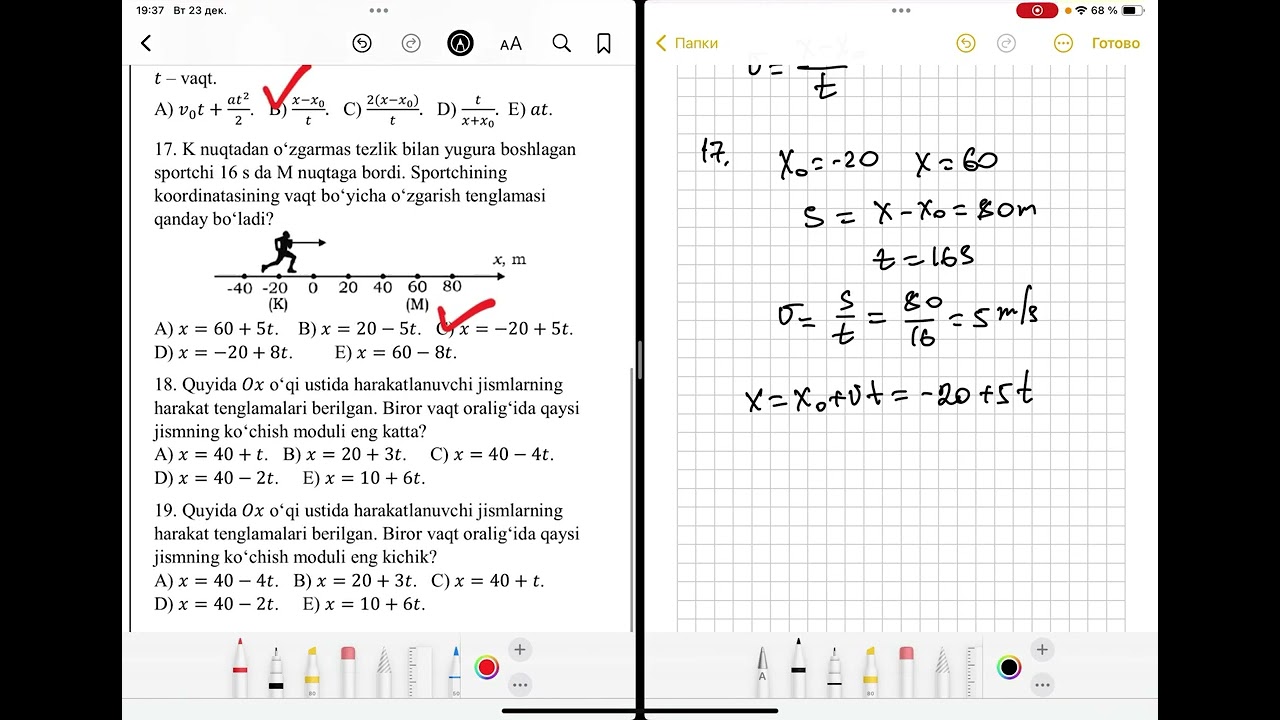 19:37 Вт 23 дек.
68 %
AA
Папки
Готово
t – vaqt.
A) v₀t + at²/2. B) x−x₀/t. C) 2(x−x₀)/t. D) t/x+x₀. E) at.
17. K nuqtadan o‘zgarmas tezlik bilan yugura boshlagan
sportchi 16 s da M nuqtaga bordi. Sportchining
koordinatasining vaqt bo‘yicha o‘zgarish tenglamasi
qanday bo‘ladi?
x, m
-40 -20 0 20 40 60 80
(K) (M)
A) x = 60 + 5t. B) x = 20 − 5t. C) x = −20 + 5t.
D) x = −20 + 8t. E) x = 60 − 8t.
18. Quyida Ox o‘qi ustida harakatlanuvchi jismlarning
harakat tenglamalari berilgan. Biror vaqt oralig‘ida qaysi
jismning ko‘chish moduli eng katta?
A) x = 40 + t. B) x = 20 + 3t. C) x = 40 − 4t.
D) x = 40 − 2t. E) x = 10 + 6t.
19. Quyida Ox o‘qi ustida harakatlanuvchi jismlarning
harakat tenglamalari berilgan. Biror vaqt oralig‘ida qaysi
jismning ko‘chish moduli eng kichik?
A) x = 40 − 4t. B) x = 20 + 3t. C) x = 40 + t.
D) x = 40 − 2t. E) x = 10 + 6t.
t
17. x₀ = -20 x = 60
S = x - x₀ = 80m
t = 16s
υ = S/t = 80/16 = 5 m/s
x = x₀ + υt = -20 + 5t
80
50
A
80